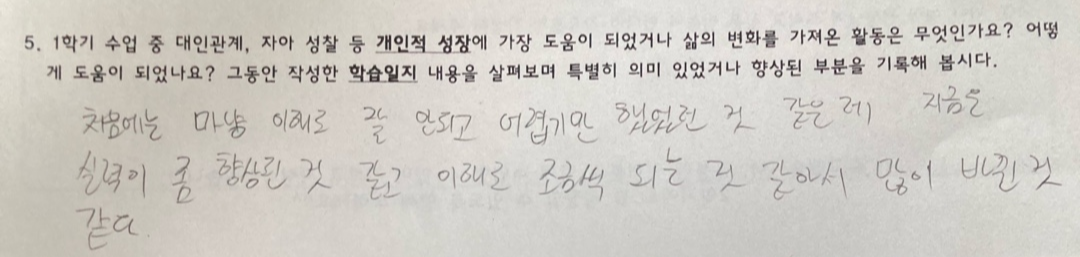 5. 1학기 수업 중 대인관계, 자아 성찰 등 개인적 성장에 가장 도움이 되었거나 삶의 변화를 가져온 활동은 무엇인가요? 어떻
게 도움이 되었나요? 그동안 작성한 학습일지 내용을 살펴보며 특별히 의미 있었거나 향상된 부분을 기록해 봅시다.
처음에는 마냥 이해도 잘 안되고 어렵기만 했었던 것 같은데 지금은
실력이 좀 향상된 것 같고 이해도 조금씩 되는 것 같아서 많이 바뀐 것
같다.